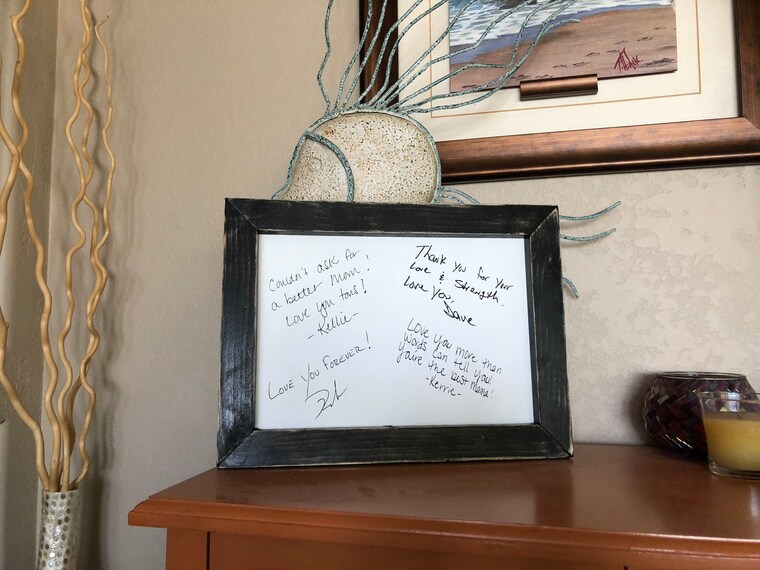 Couldn't ask for
a better Mom!
Love you tons!
-Kellie-
Love you forever!
Thank you for your
Love & Strength.
Love you,
Dave
Love you more than
words can tell you!
you're the best mama!
-Kerrie-